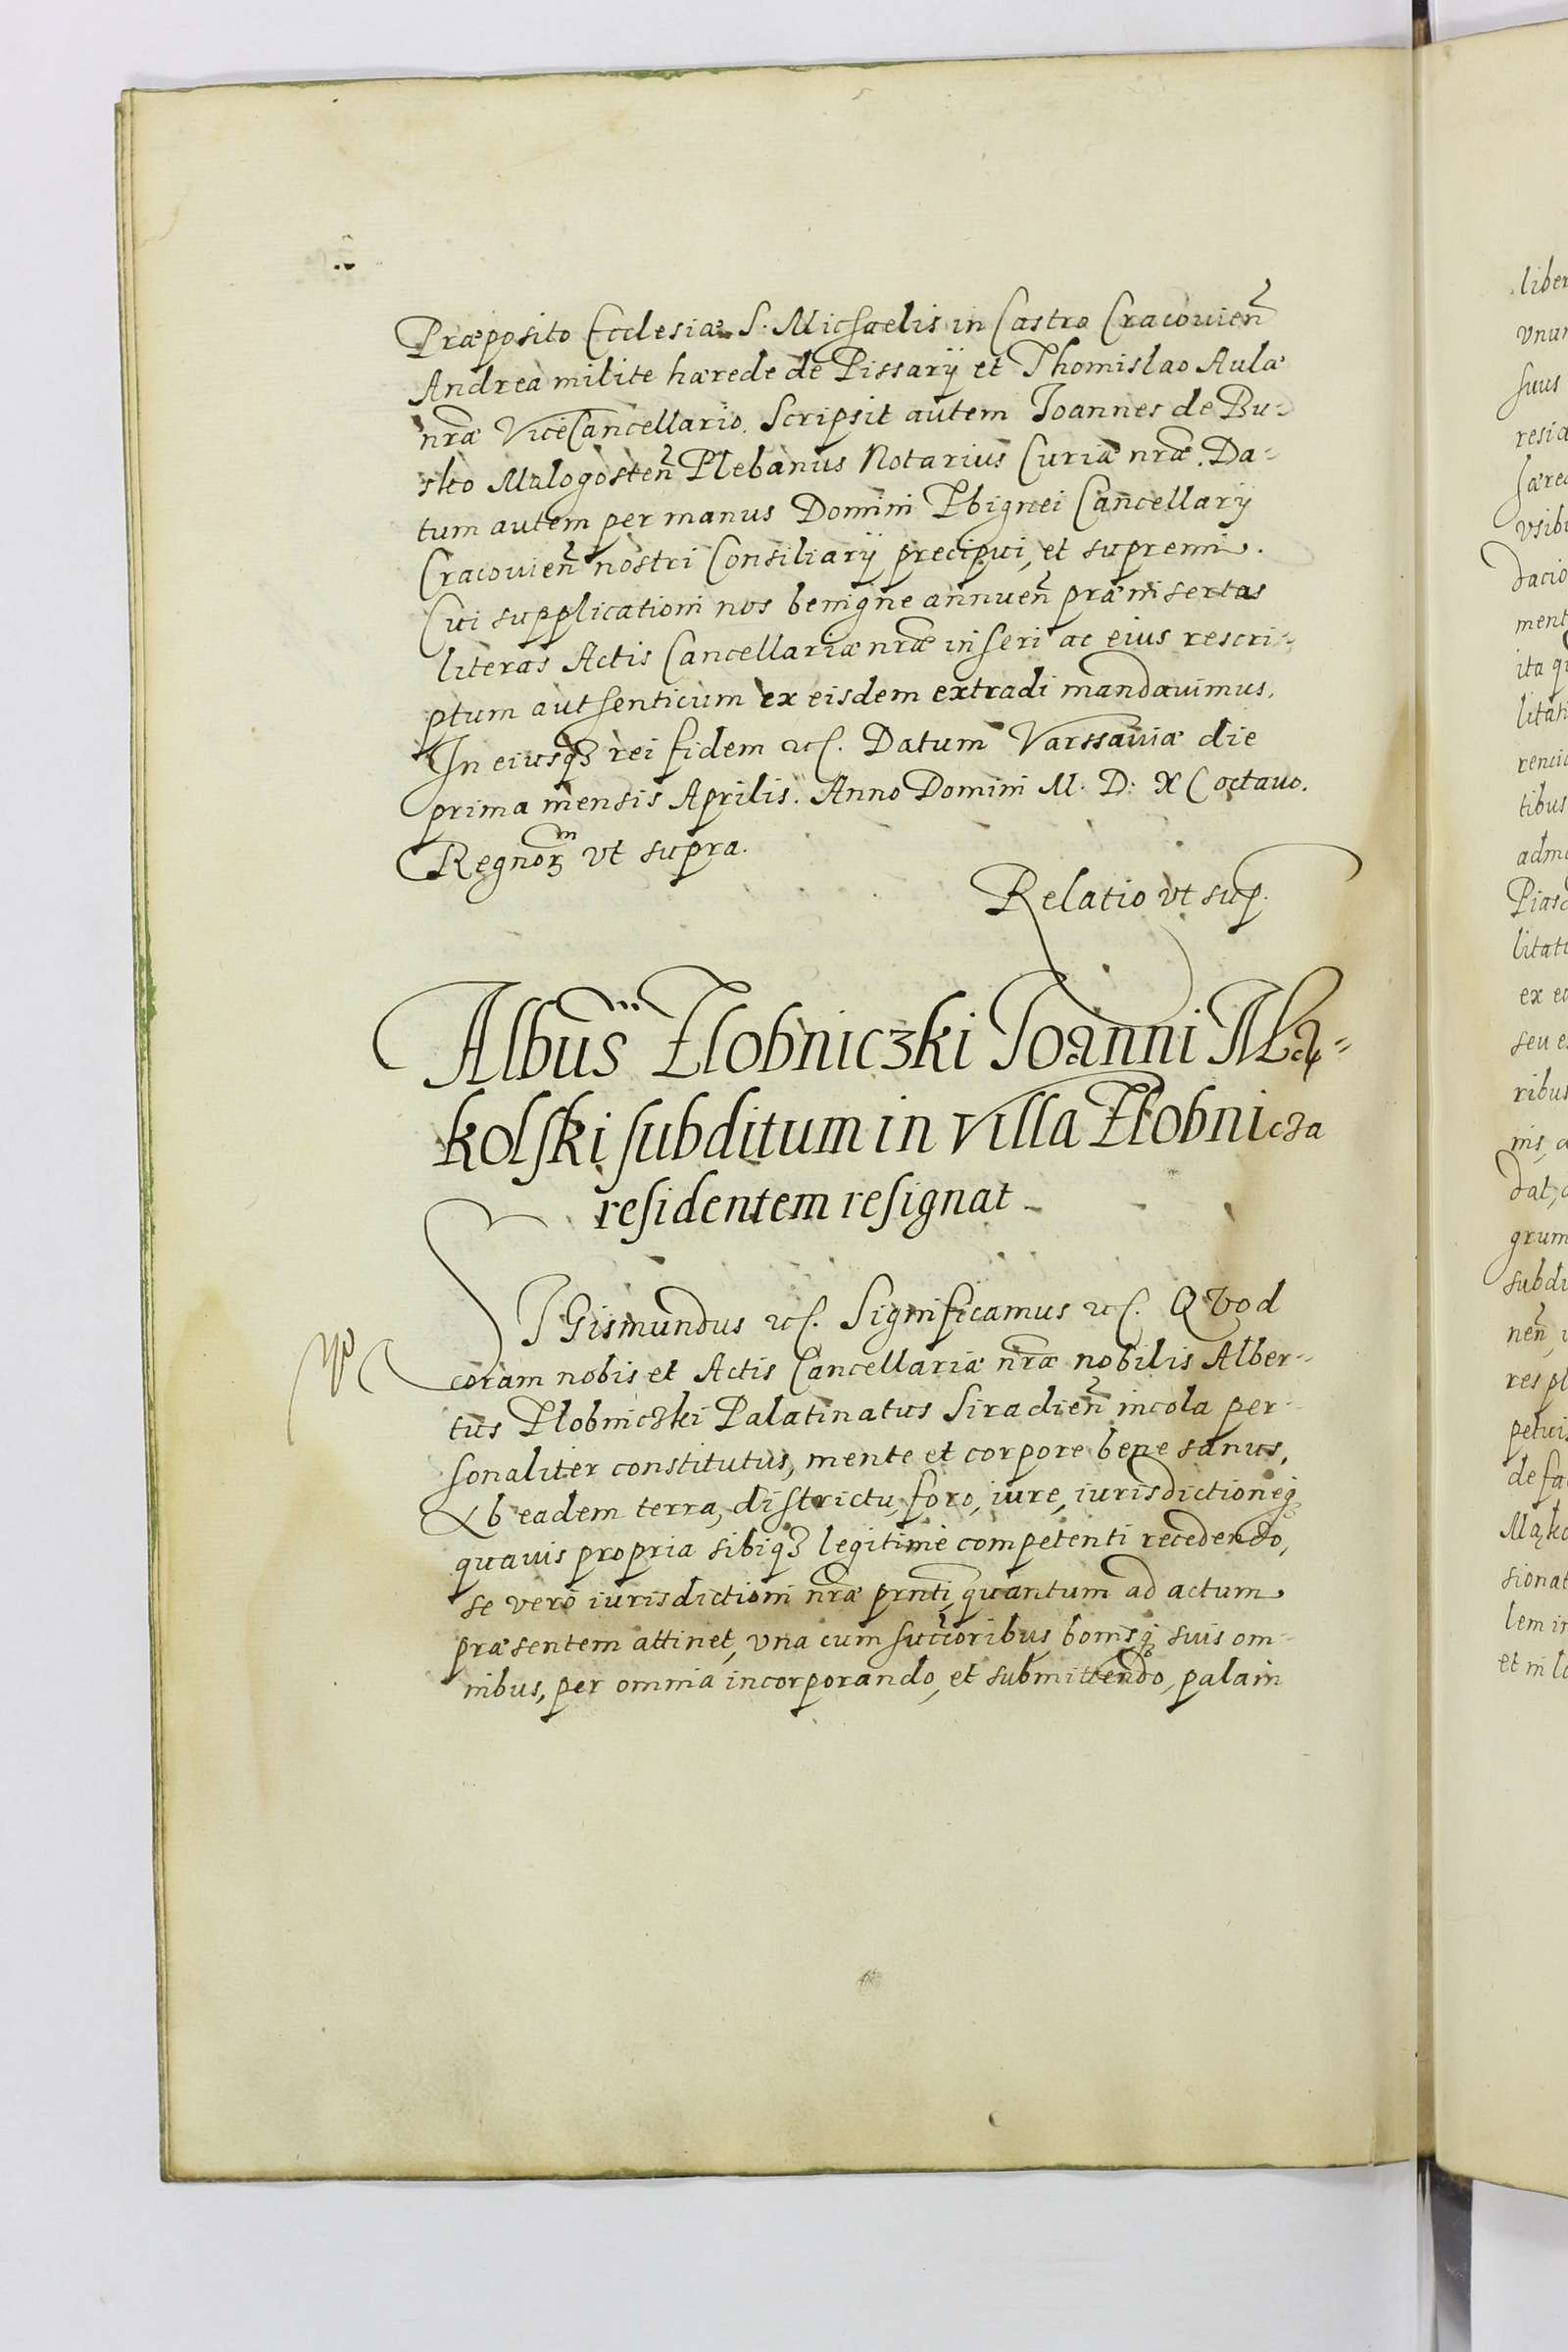 Præposito Ecclesiæ S. Michaelis in Castro Cracouien̄
Andrea milite hærede de Pissary et Thomislao Aulæ
nr̄æ ViceCancellario. Scripsit autem Joannes de Bu-
sko Malogosten̄ Plebanus Notarius Curiæ nr̄æ. Da-
tum autem per manus Domini Zbignei Cancellarij
Cracouien̄ nostri Consiliarij precipui, et supremi.
Cui supplicationi nos benigne annuen̄ præinsertas
literas Actis Cancellariæ nr̄æ inseri ac eius rescri-
ptum authenticum ex eisdem extradi mandauimus.
In eiusqꝫ rei fidem etc. Datum Varssauiæ die
prima mensis Aprilis. Anno Domini M. D. XC octauo.
Regnorꝫ vt supra.
Relatio vt sup.
Albūs Zlobniczki Joanni Mą-
kolski subditum in villa Złobnicza
residentem resignat
SIGismundus etc. Significamus etc. QVod
coram nobis et Actis Cancellariæ nr̄æ nobilis Alber-
tus Zlobniczki Palatinatus Siradien̄ incola per-
sonaliter constitutus, mente et corpore bene sanus,
Ab eadem terra, districtu, foro, iure, iurisdictioneqꝫ
quauis propria sibiqꝫ legitime competenti recedendo,
se vero iurisdictioni nr̄æ prn̄ti, quantum ad actum
præsentem attinet, vna cum succ̄oribus, bonisqꝫ suis om-
nibus, per omnia incorporando, et submittendo, palam
liber
vnum
suus
resid
hæred
vsibu
dacio
ment
ita q
litati
rencia
tibus
admo
Piase
litati
ex eo
seu e
ribus
nis, a
dat, c
grum
subdi
nen̄,
res pl
petuis
de fa
Mąko
sionat
lem in
et in lo